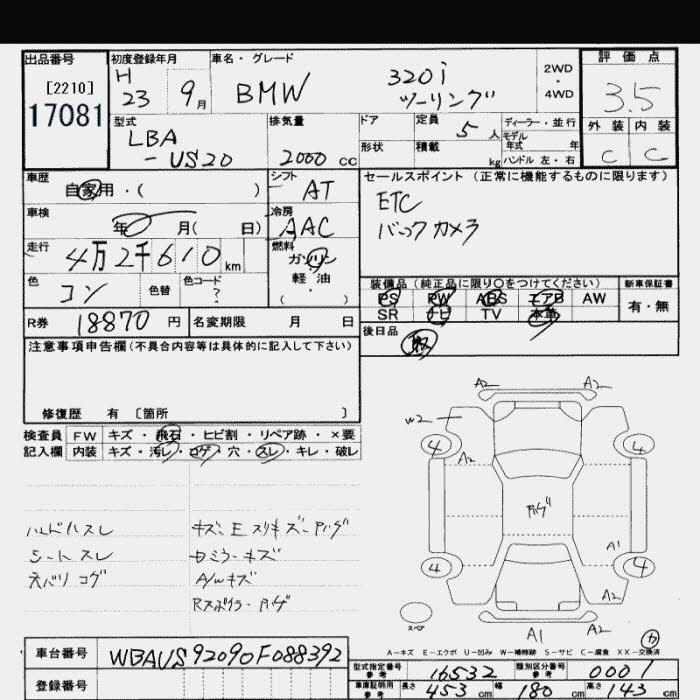 出品番号 初度登録年月 車名・グレード 評価点
[2210] H 23 9月 BMW 320i ツーリング 2WD・4WD 3.5
17081
外装 内装
C C
型式 排気量 ドア 定員 5人 ディーラー・並行
LBA-US20 2000cc 形状 積載 kg モデル年式 年
ハンドル 左・右
車歴 シフト セールスポイント(正常に機能するものに限ります)
自家用・( ) AT ETC
車検 冷房 バックカメラ
年 月( 日) AAC
走行 燃料
4万2千610km ガソリン
軽・油
( )
色 色替 色コード
コン ?
装備品(純正品に限り〇をつけてください) 新車保証書
PS PW ABS エアB AW 有・無
SR ナビ TV 本革
R券 18870円 名変期限 月 日
後日品
注意事項申告欄(不具合内容等は具体的に記入して下さい)
修復歴 有 [箇所 ]
検査員 FW キズ・飛石・ヒビ割・リペア跡・×要
記入欄 内装 キズ・汚レ・コゲ・穴・スレ・キレ・破レ
ハンドルスレ
シートスレ
天バリコゲ
キズ、E スリキズ
ミラーキズ
A/Wキズ
A2 A2
W2
4 4
A2
A1
4 4
A2
A1 A2
スペア
A-キズ E-エクボ U-凹み W-補修跡 S-サビ C-腐食 XX-交換済
車台番号 WBAUS92090F088392
登録番号
型式指定番号 参考 16532 類別区分番号 参考 0001
車庫証明用 参考 長さ 453cm 幅 180cm 高さ 143cm